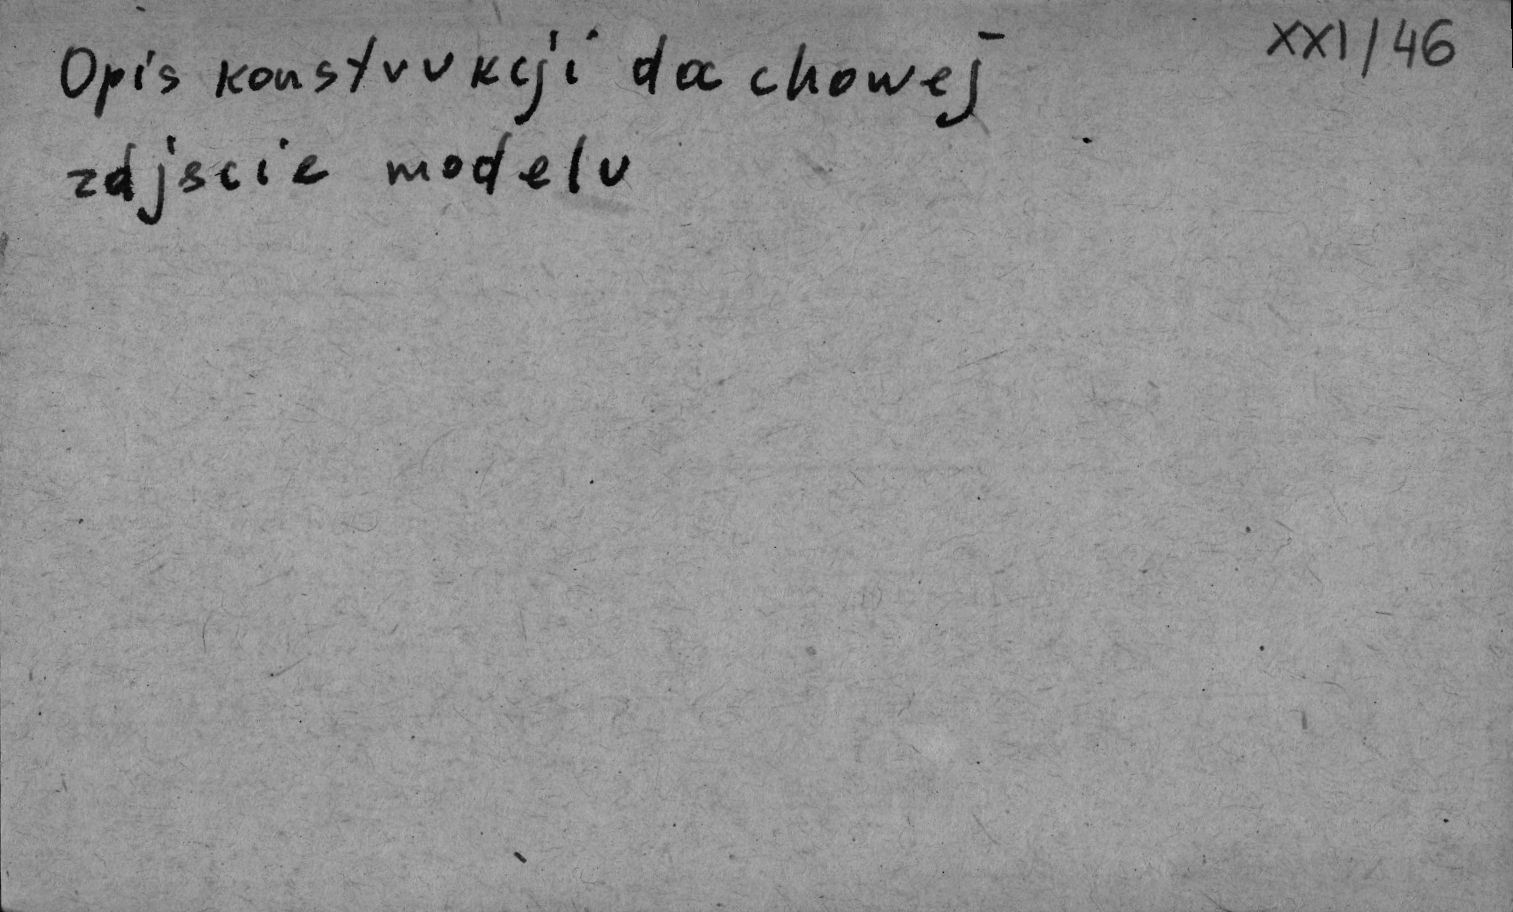 Opis konstrukcji dachowej XXI/46
zdjscie modelu